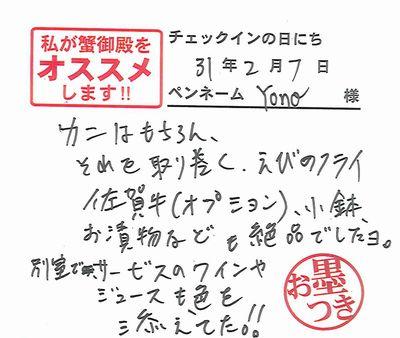 私が蟹御殿を
オススメ
します!!
チェックインの日にち
31年2月7日
ペンネーム Yono 様
カニはもちろん、
それを取り巻く、えびのフライ
佐賀牛(オプション)、小鉢、
お漬物なども絶品でしたヨ。
別室でサービスのワインや
ジュースも色を
添えてた!!
お墨つき